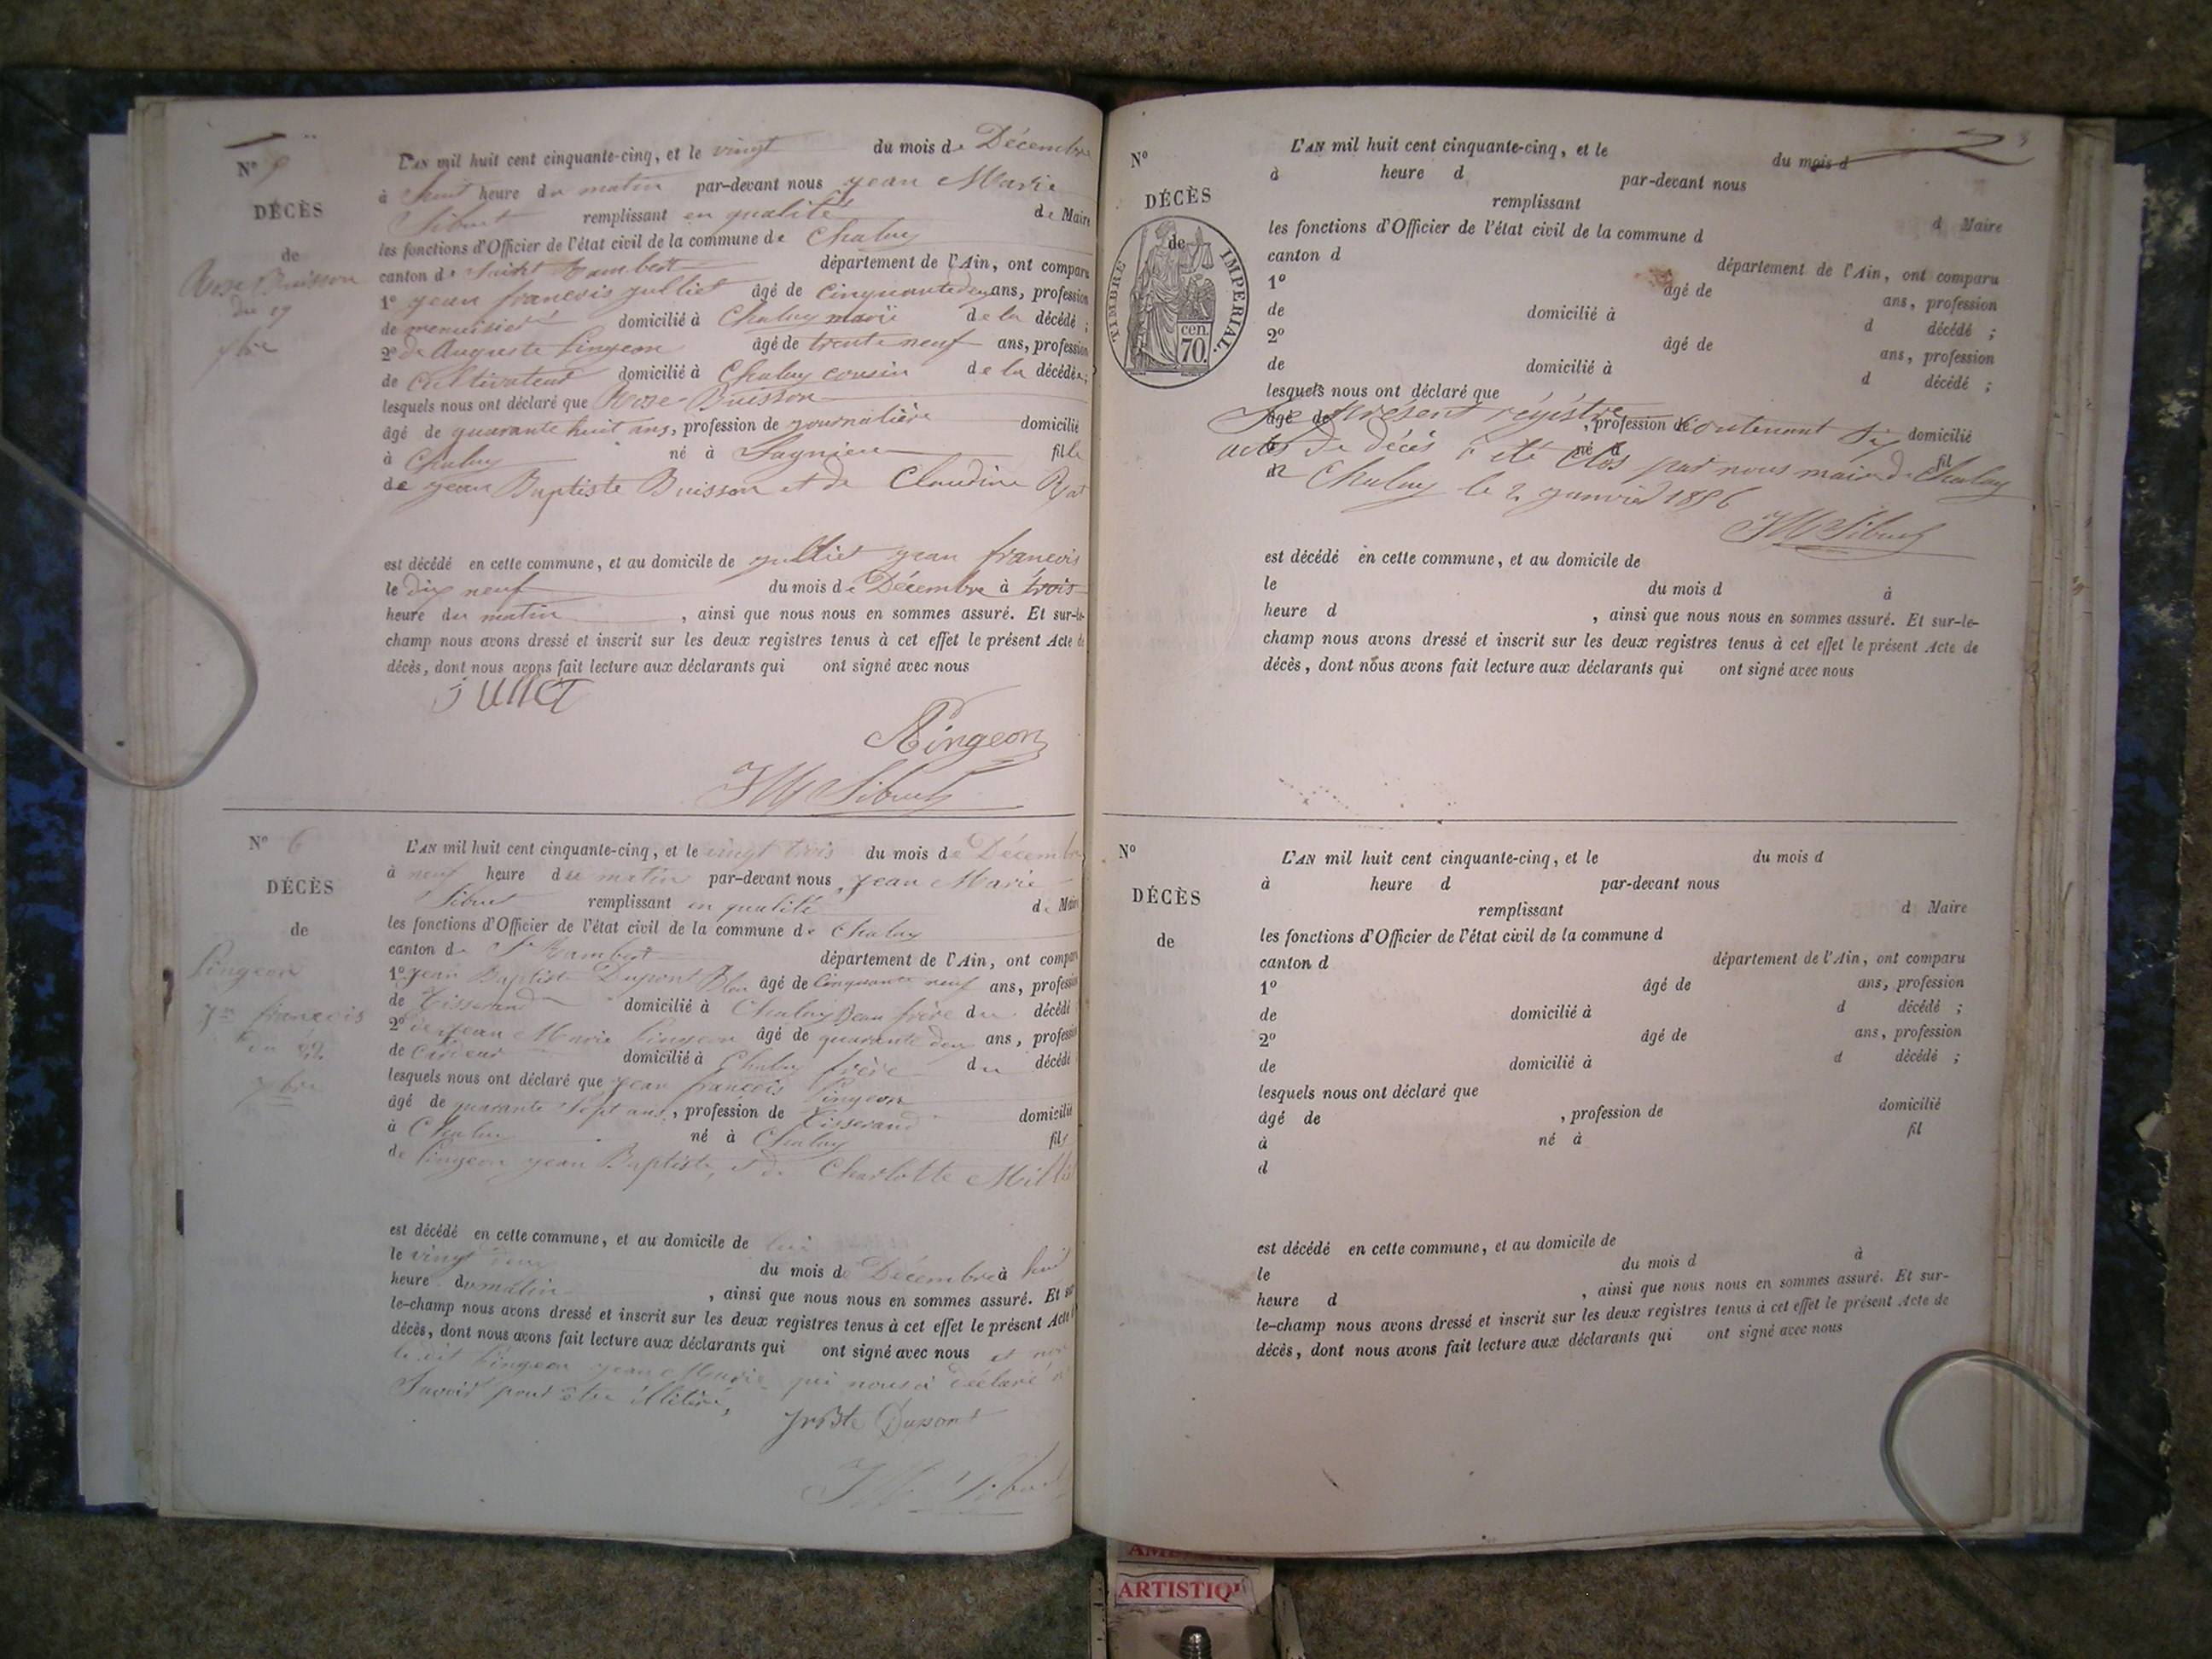 N° 5
DÉCÈS
de
Rose Buisson
du 19
L'AN mil huit cent cinquante-cinq, et le vingt du mois de Décembre
à huit heure du matin par-devant nous jean Marie
Sibuet remplissant en qualité de Maire
les fonctions d'Officier de l'état civil de la commune de Chaley
canton de Saint Rambert département de l'Ain, ont comparu
1° jean francois julliet âgé de cinquante deux ans, profession
de menuisier domicilié à Chaley marie de la décédé ;
2° de Auguste Pingeon âgé de trente neuf ans, profession
de Cultivateur domicilié à Chaley cousin de la décédée ;
lesquels nous ont déclaré que Rose Buisson
âgé de quarante huit ans, profession de journalière domicilié
à Chaley né à Lagnieu fille
de jean Baptiste Buisson et de Claudine
est décédé en cette commune, et au domicile de julliet jean francois
le dix neuf du mois de Décembre à trois
heure du matin , ainsi que nous nous en sommes assuré. Et sur-le-
champ nous avons dressé et inscrit sur les deux registres tenus à cet effet le présent Acte de
décès, dont nous avons fait lecture aux déclarants qui ont signé avec nous
julliet
APingeon
JM Sibuet
N° 6
DÉCÈS
de
Pingeon
jn francois
du 22
L'AN mil huit cent cinquante-cinq, et le vingt trois du mois de Décembre
à neuf heure du matin par-devant nous jean Marie
Sibuet remplissant en qualité de Maire
les fonctions d'Officier de l'état civil de la commune de Chaley
canton de St Rambert département de l'Ain, ont comparu
1° jean Baptiste Dupont âgé de cinquante neuf ans, profession
de Tisserand domicilié à Chaley Beau frère du décédé ;
2° de jean Marie Pingeon âgé de quarante deux ans, profession
de domicilié à Chaley frère du décédé
lesquels nous ont déclaré que jean francois Pingeon
âgé de quarante sept ans, profession de Tisserand domicilié
à Chaley né à Chaley fils
de Pingeon jean Baptiste, et de Charlotte
est décédé en cette commune, et au domicile de lui
le vingt deux du mois de Décembre à huit
heure du matin , ainsi que nous nous en sommes assuré. Et sur
le-champ nous avons dressé et inscrit sur les deux registres tenus à cet effet le présent Acte
décès, dont nous avons fait lecture aux déclarants qui ont signé avec nous et non
le dit Pingeon jean Marie qui nous a déclaré
Savoir pour être illitéré,
JnBte Dupont
JM Sibuet
N°
DÉCÈS
de
TIMBRE IMPERIAL.
70 cen.
L'AN mil huit cent cinquante-cinq, et le du mois d
à heure d par-devant nous
remplissant d Maire
les fonctions d'Officier de l'état civil de la commune d
canton d département de l'Ain, ont comparu
1° âgé de ans, profession
de domicilié à d décédé ;
2° âgé de ans, profession
de domicilié à d décédé ;
lesquels nous ont déclaré que
âgé de , profession de domicilié
à né à fil
d
Le présent régistre contenant six
actes de décès à été clos par nous maire de Chaley
a Chaley le 2 janvier 1856
JM Sibuet
est décédé en cette commune, et au domicile de
le du mois d à
heure d , ainsi que nous nous en sommes assuré. Et sur-le-
champ nous avons dressé et inscrit sur les deux registres tenus à cet effet le présent Acte de
décès, dont nous avons fait lecture aux déclarants qui ont signé avec nous
N°
DÉCÈS
de
L'AN mil huit cent cinquante-cinq, et le du mois d
à heure d par-devant nous
remplissant d Maire
les fonctions d'Officier de l'état civil de la commune d
canton d département de l'Ain, ont comparu
1° âgé de ans, profession
de domicilié à d décédé ;
2° âgé de ans, profession
de domicilié à d décédé ;
lesquels nous ont déclaré que
âgé de , profession de domicilié
à né à fil
d
est décédé en cette commune, et au domicile de
le du mois d à
heure d , ainsi que nous nous en sommes assuré. Et sur-
le-champ nous avons dressé et inscrit sur les deux registres tenus à cet effet le présent Acte de
décès, dont nous avons fait lecture aux déclarants qui ont signé avec nous
ARTISTIQU